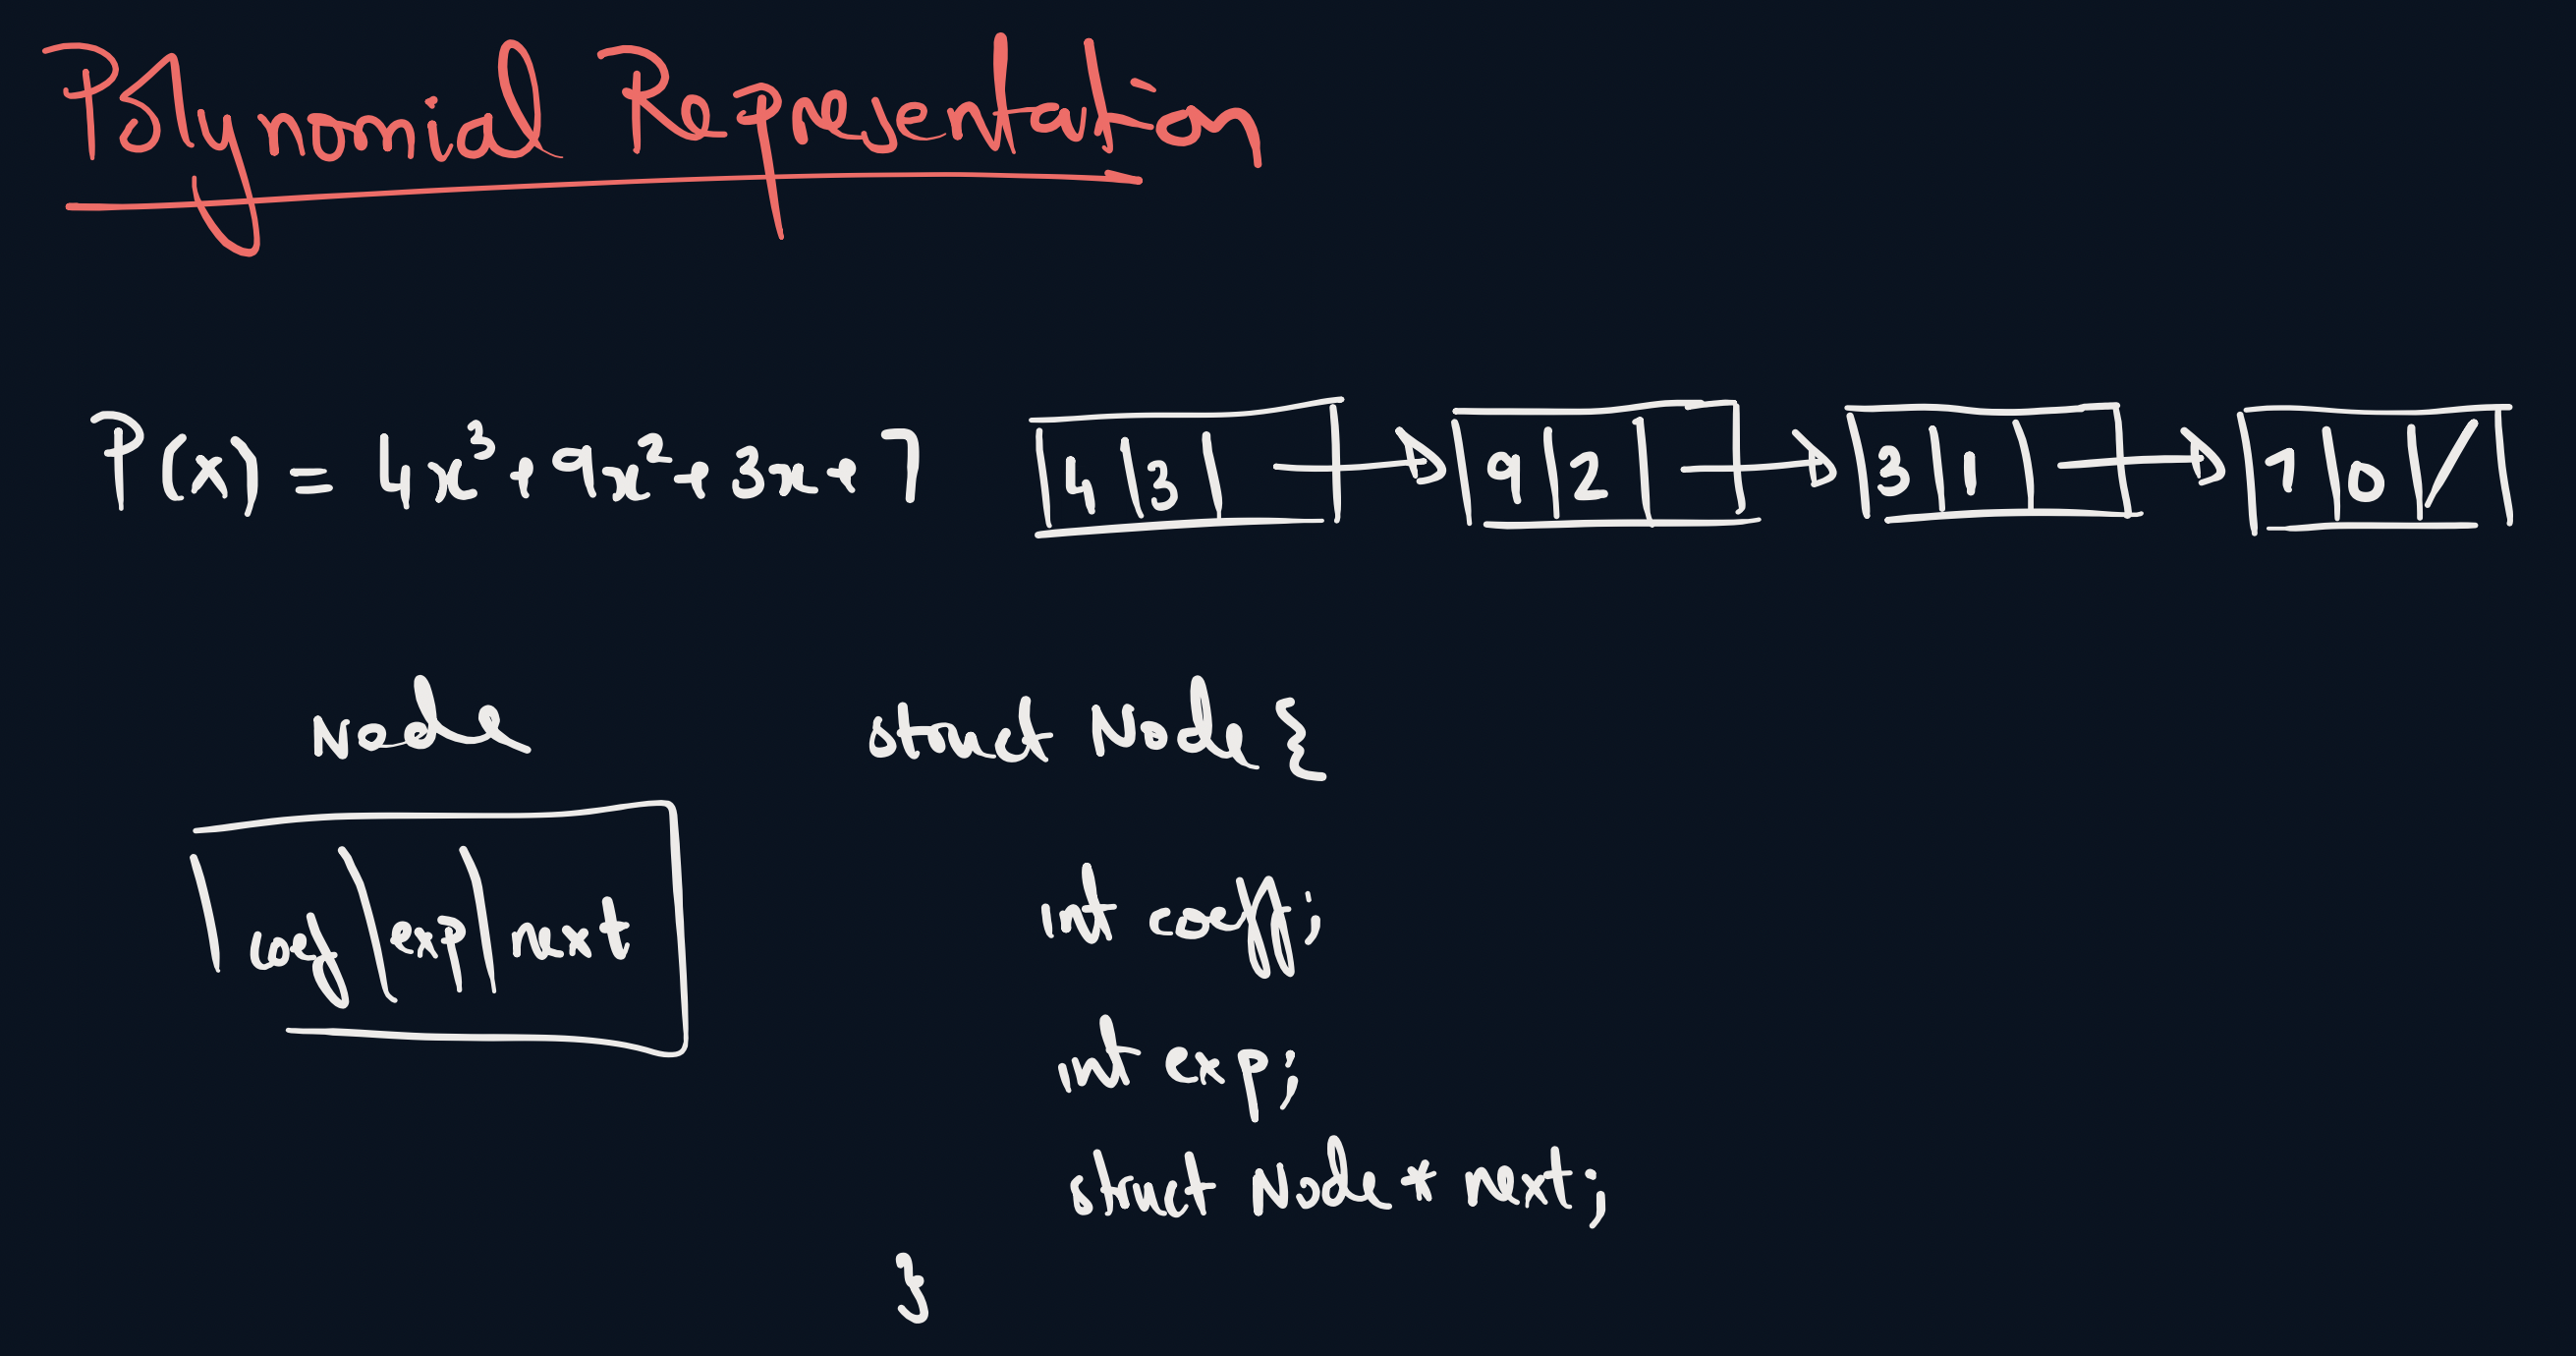 Polynomial Representation
P(x) = 4x³ + 9x² + 3x + 7
4 3
9 2
3 1
7 0 /
Node
coef exp next
struct Node {
int coeff;
int exp;
struct Node * next;
}